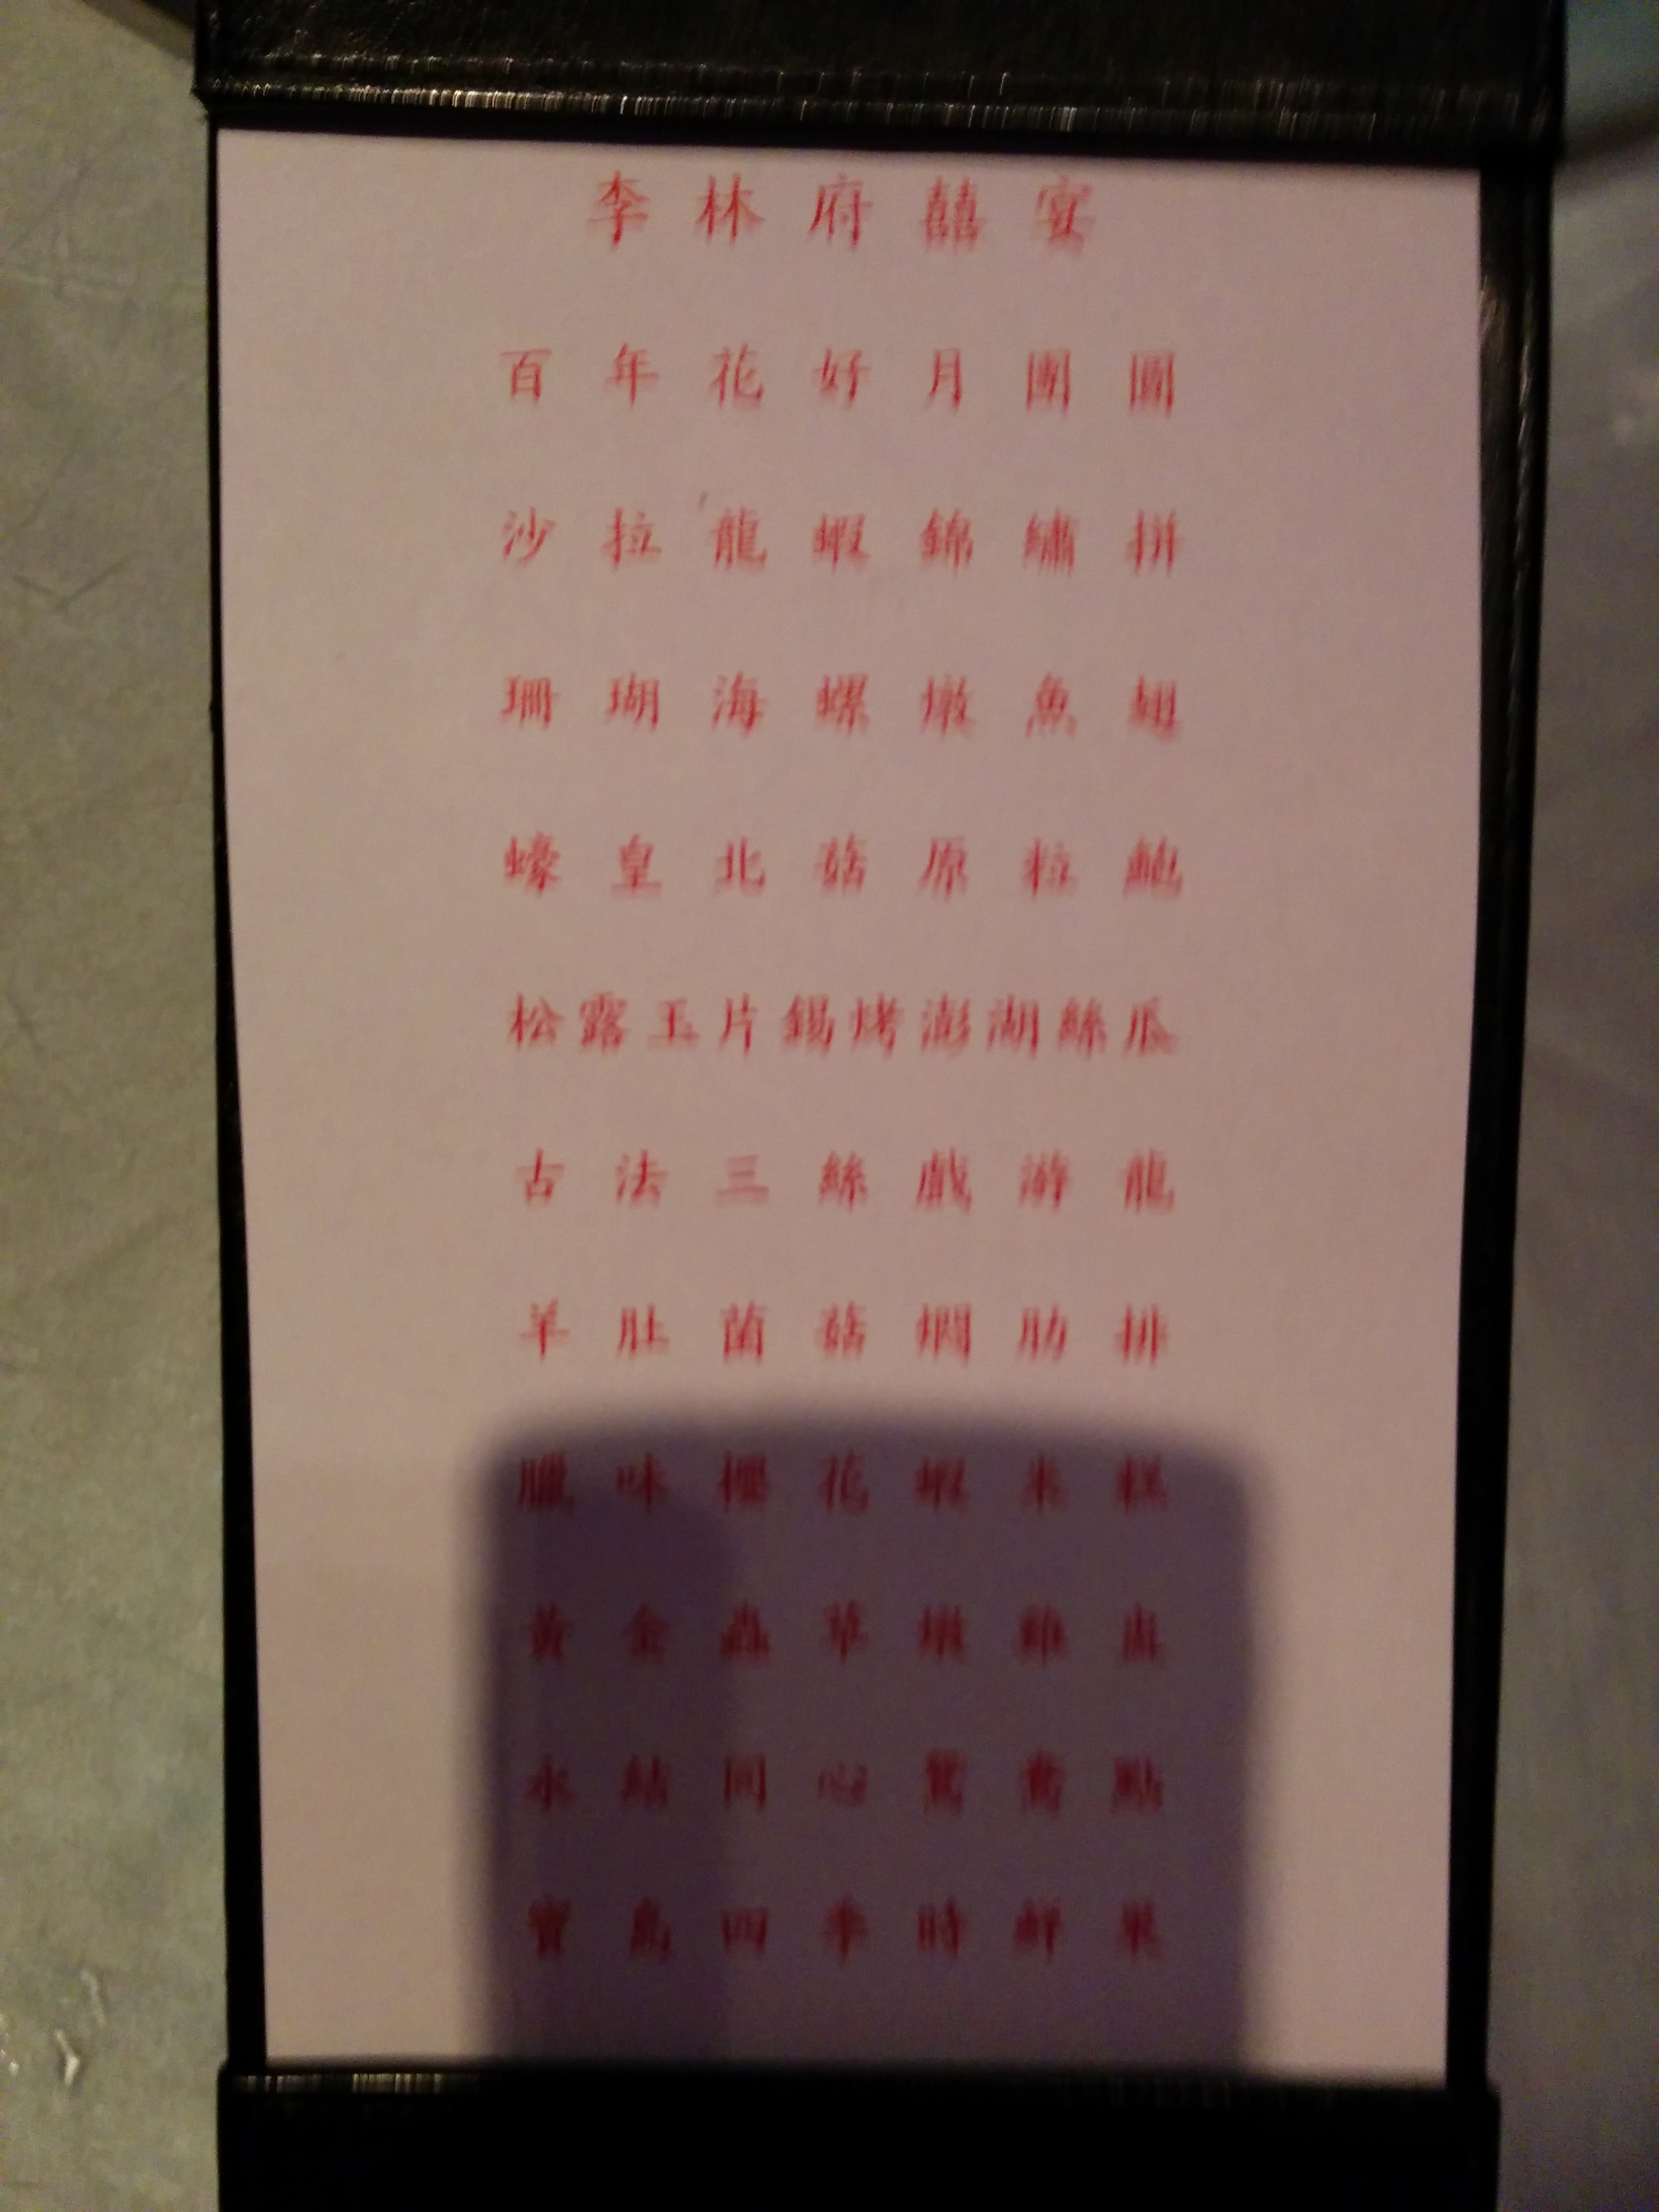 李林府囍宴
百年花好月團圓
沙拉龍蝦錦繡拼
珊瑚海螺燉魚翅
蠔皇北菇原粒鮑
松露玉片錫烤澎湖絲瓜
古法三絲戲游龍
羊肚菌菇燜肋排
臘味櫻花蝦米糕
黃金蟲草燉雞盅
永結同心鴛鴦點
寶島四季時鮮果